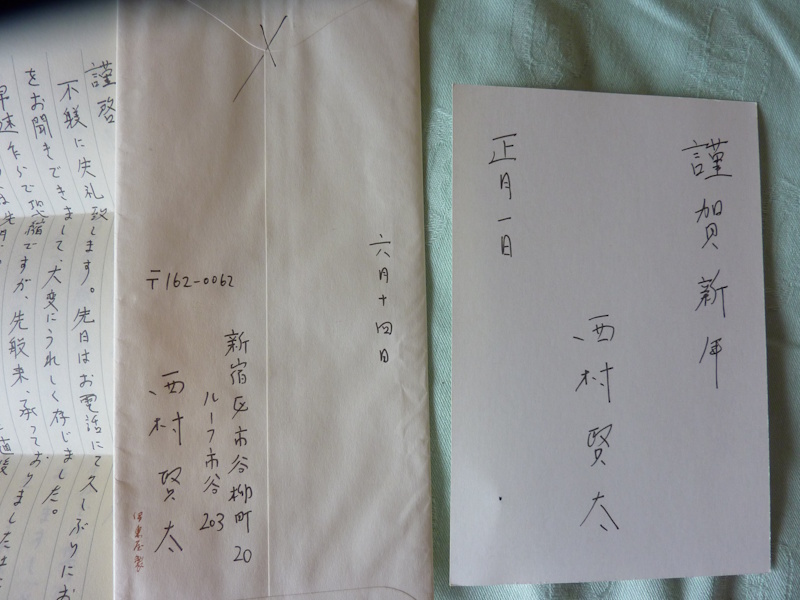 謹賀新年
西村賢太
正月一日
六月十四日
〒162-0062
新宿区市谷柳町20
ルーフ市谷203
西村賢太
伊東屋製
謹啓
不躾に失礼致します。先日はお電話にて久しぶりにお
をお聞きできまして、大変にうれしく存じました。
早速乍らで恐縮ですが、先般来、承っておりました
直後